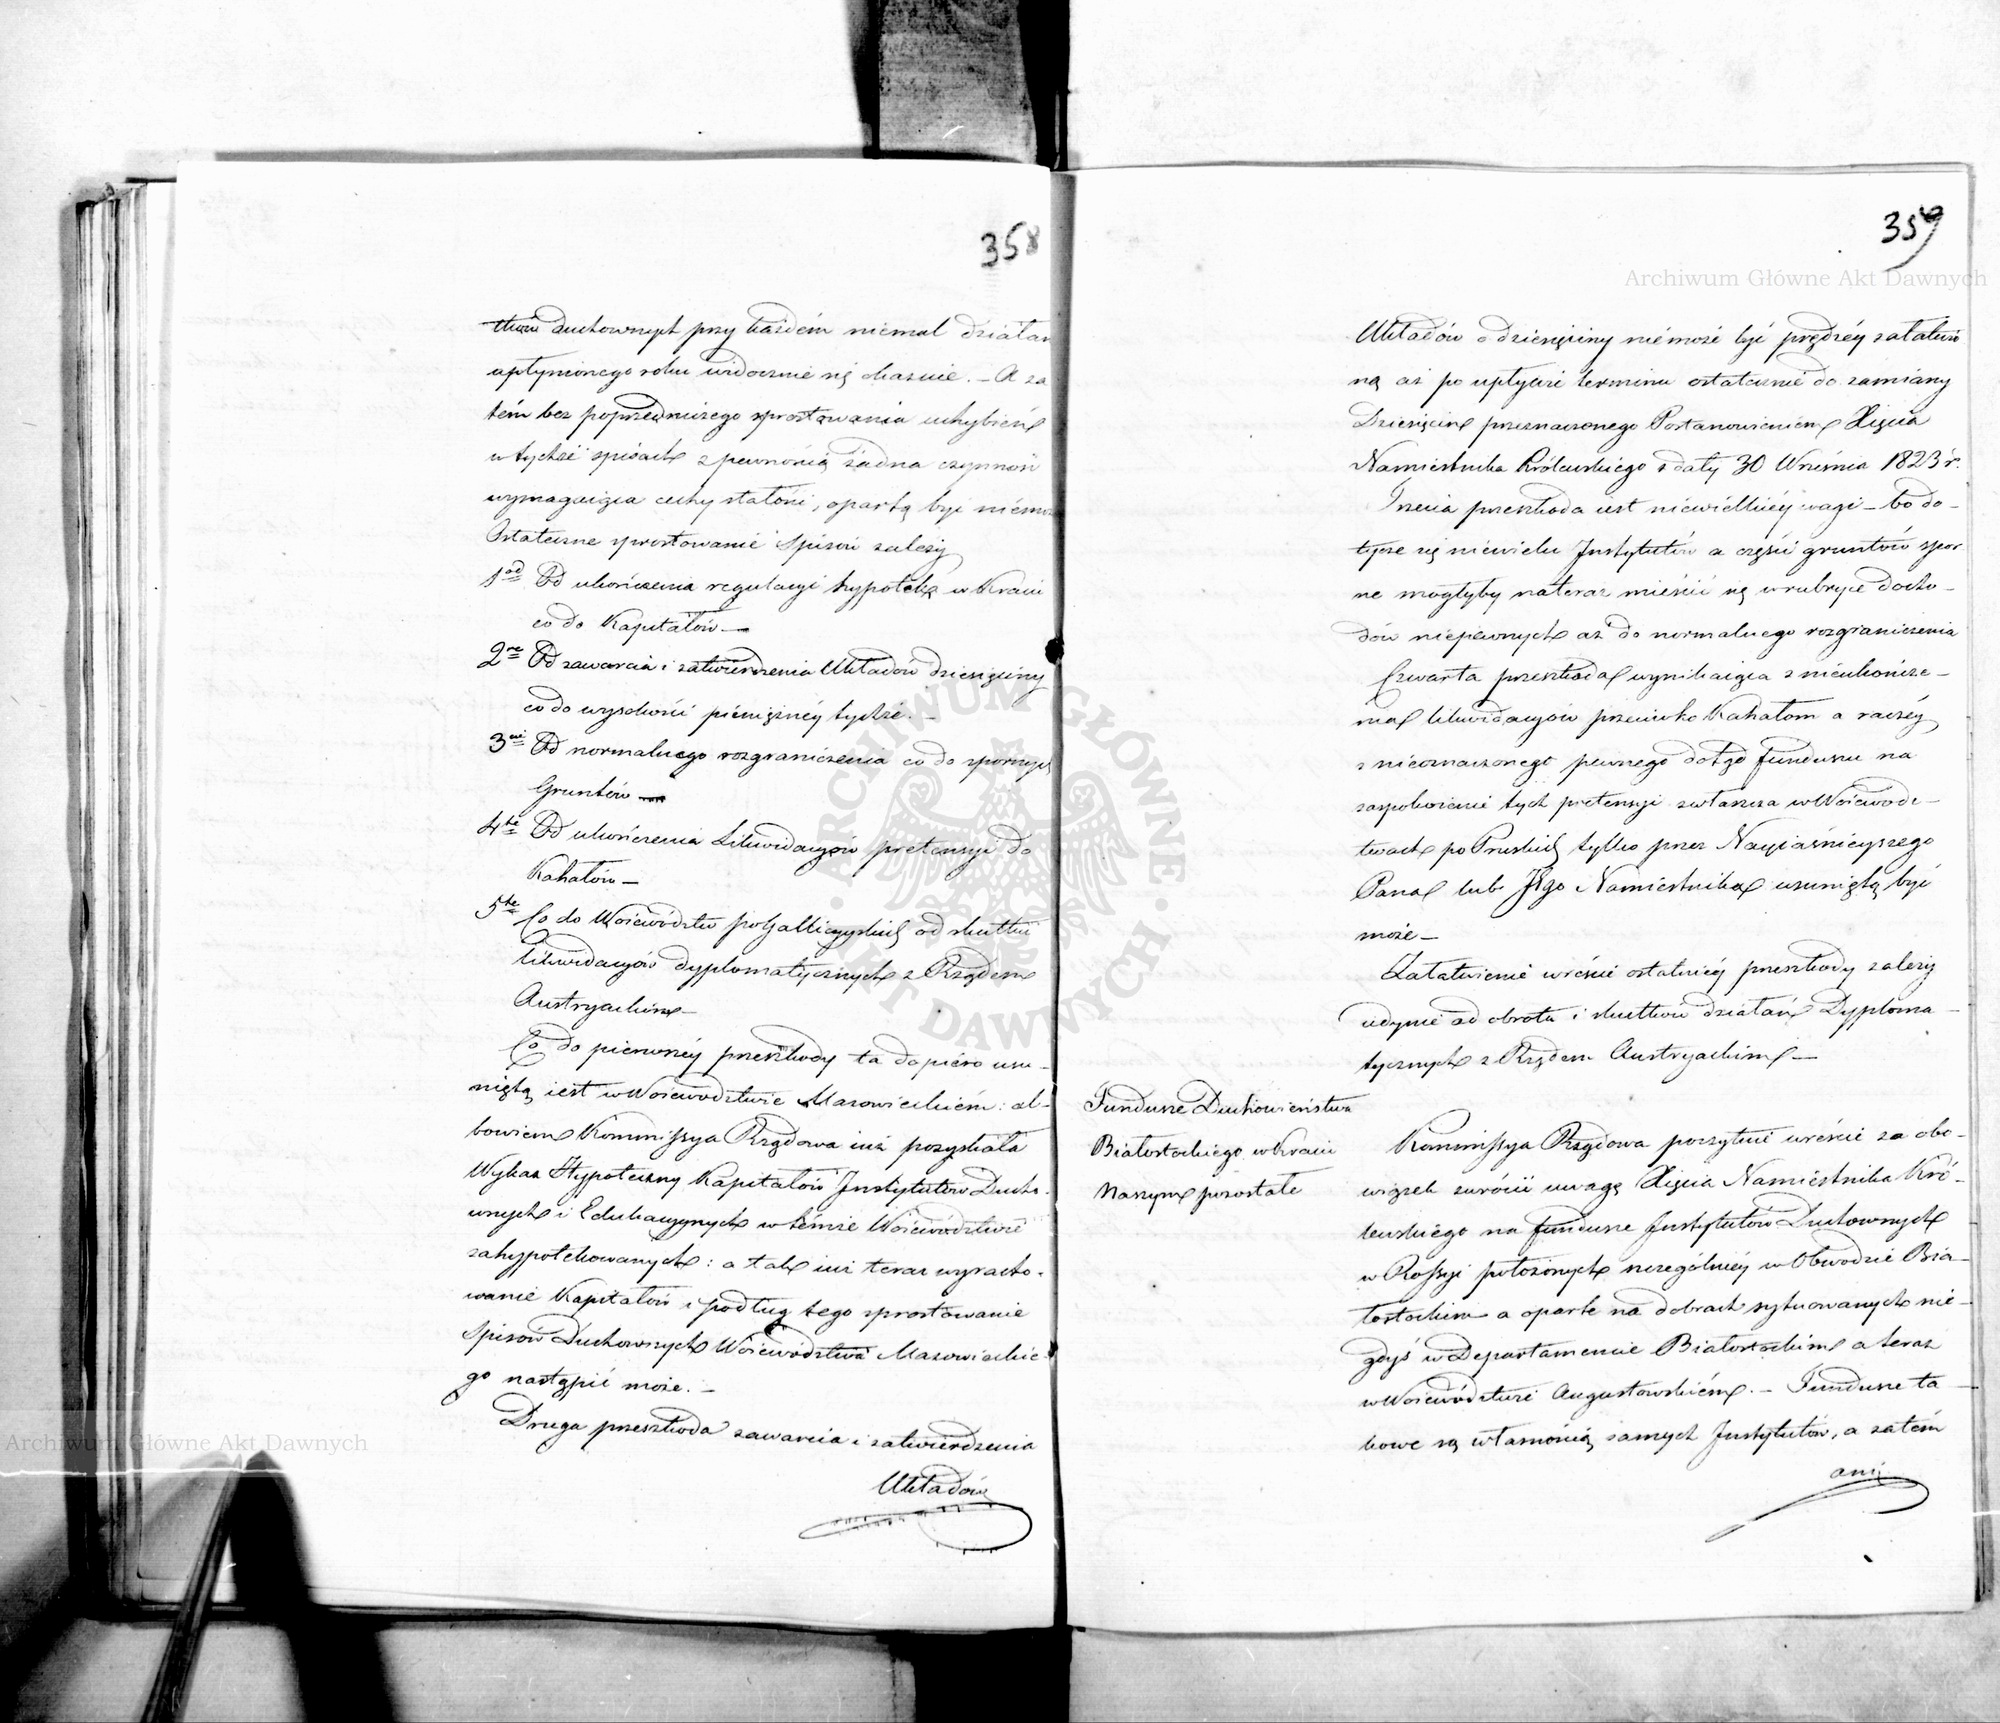 358
duchownych przy każdém niemal działan
upłynionego roku widocznie się okazuie. – A za
tém bez poprzedniczego sprostowania uchybień
w tychże spisach z pewnością żadna czynność
wymagaiąca cechy stałości, opartą być niemoż
Ostateczne sprostowanie Spisów zależy
1od Od ukończenia regulacyi hypotek w Kraiu
co do Kapitałów –
2re Od zawarcia i zatwierdzenia Układów dziesięciny
co do wysokości pieniężnéy tychże. –
3cie Od normalnego rozgraniczenia co do spornych
Gruntów –
4te Od ukończenia Likwidacyów pretensyi do
Kahałów –
5te Co do Woiewództw poGallicyyskich od skutku
likwidacyów dyplomatycznych z Rządem
Austryackim –
Co do pierwszéy przeszkody ta dopiéro usu-
niętą iest w Woiewództwie Mazowieckiém: al-
bowiem Kommissya Rządowa iuż pozyskała
Wykaz Hypoteczny Kapitałów Instytutów Ducho-
wnych i Edukacyynych w témże Woiewództwie
zahypotekowanych: a tak iuż teraz wyracho-
wanie Kapitałów i podług tego sprostowanie
Spisów Duchownych Woiewództwa Mazowieckie-
go nastąpić może. –
Druga przeszkoda zawarcia i zatwierdzenia
Układów
359
Układów o dziesięciny niemoże być prędzéy załatwio
ną aż po upłycie terminu ostatecznie do zamiany
Dziesięcin przeznaczonego Postanowieniem Xięcia
Namiestnika Królewskiego z daty 30 Września 1823 r.
Trzecia przeszkoda iest niewielkiéy wagi – bo do-
tycze się niewielu Instytutów a części gruntów spor
ne mogłyby nateraz mieścić się w rubryce docho-
dów niepewnych aż do normalnego rozgraniczenia
Czwarta przeszkoda wynikaiąca z nieukończe-
nia likwidacyów przeciwko Kahałom a raczéy
z nieoznaczonego pewnego dotąd funduszu na
zaspokoienie tych pretensyi zwłaszcza w Woiewódz-
twach poPruskich tylko przez Nayiaśnieyszego
Pana lub Jego Namiestnika usuniętą być
może –
Załatwienie wreście ostatniéy przeszkody zależy
iedynie od obrotu i skutków działań Dyploma-
tycznych z Rządem Austryackim –
Fundusze Duchowieństwa
Białostockiego w Kraiu
Naszym pozostałe
Kommissya Rządowa poczytuie wreście za obo-
wiązek zwrócić uwagę Xięcia Namiestnika Kró-
lewskiego na fundusze Instytutów Duchownych
w Rossyi położonych szczególniéy w Obwodzie Bia-
łostockim a oparte na dobrach sytuowanych nie-
gdyś w Departamencie Białostockim a teraz
w Woiewództwie Augustowskiém. – Fundusze ta-
kowe są własnością samych Instytutów, a zatém
ani
Archiwum Główne Akt Dawnych
Archiwum Główne Akt Dawnych
ARCHIWUM GŁÓWNE AKT DAWNYCH